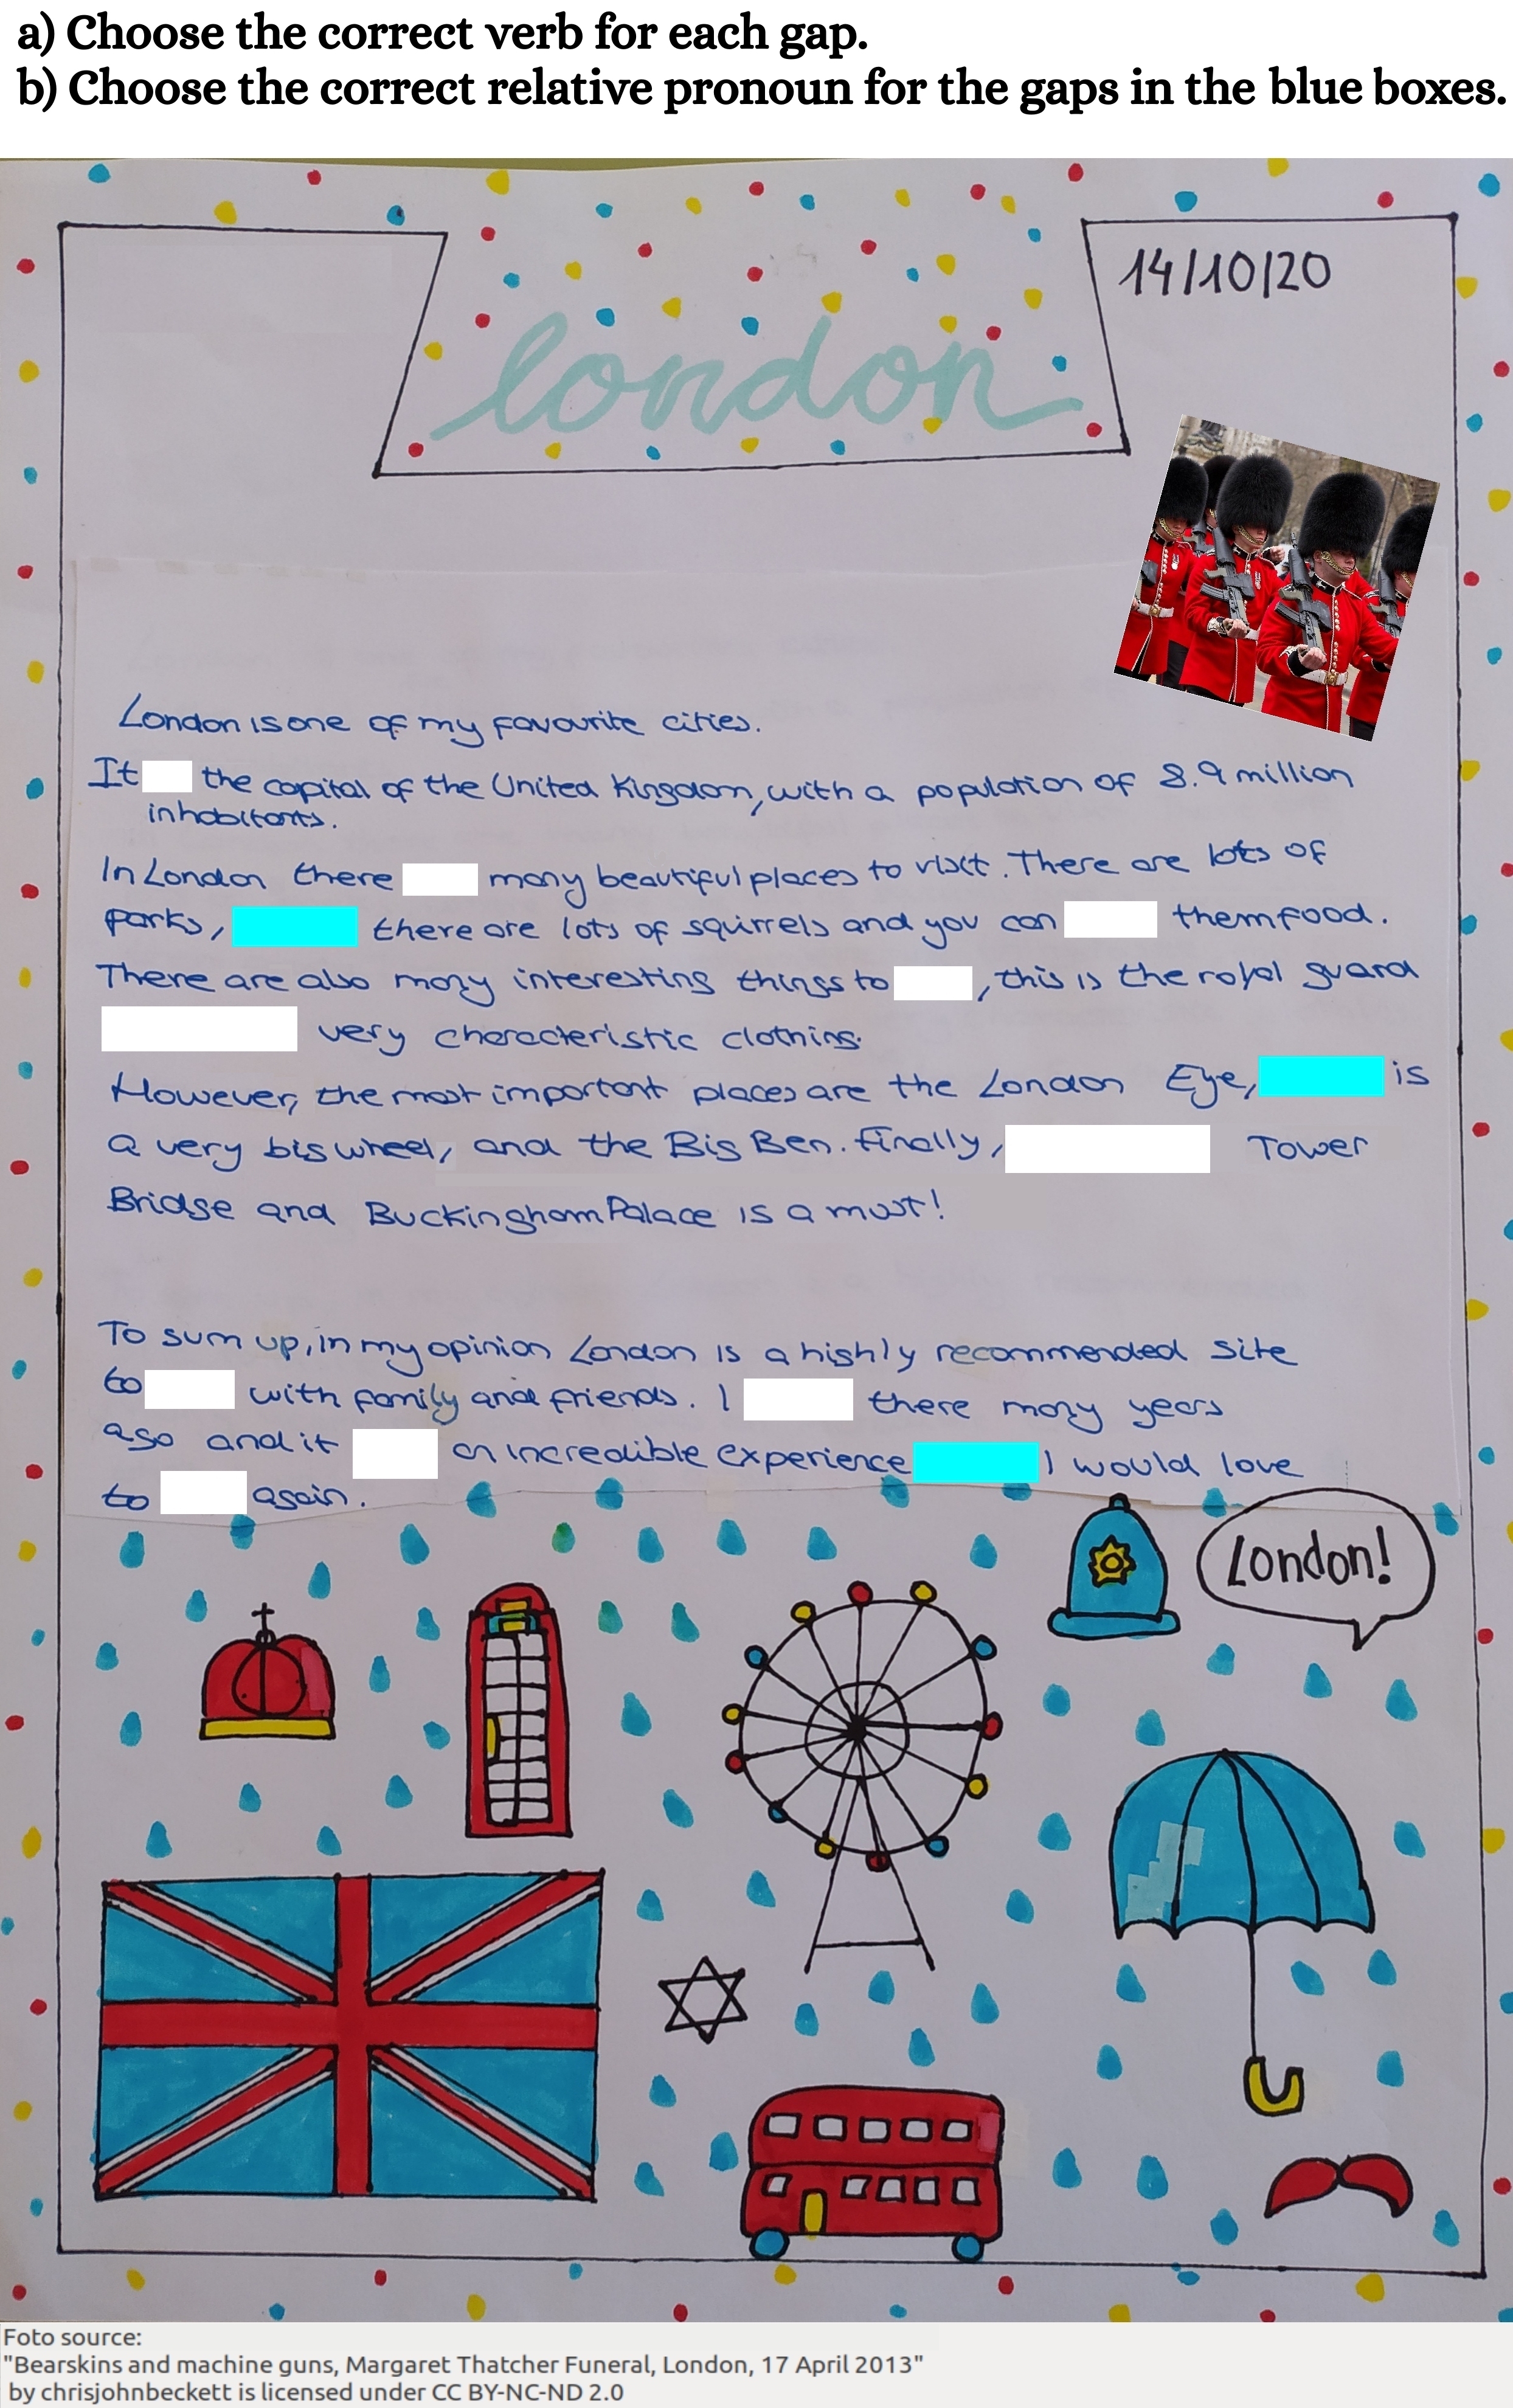 a) Choose the correct verb for each gap.
b) Choose the correct relative pronoun for the gaps in the blue boxes.
14/10/20
london
London is one of my favourite cities.
It the capital of the United Kingdom, with a population of 8.9 million
inhabitants.
In London there many beautiful places to visit. There are lots of
parks, there are lots of squirrels and you can them food.
There are also many interesting things to , this is the royal guard
very characteristic clothing.
However, the most important places are the London Eye, is
a very big wheel, and the Big Ben. Finally, Tower
Bridge and Buckingham Palace is a must!
To sum up, in my opinion London is a highly recommended site
to with family and friends. I there many years
ago and it an incredible experience I would love
to again.
London!
Foto source:
"Bearskins and machine guns, Margaret Thatcher Funeral, London, 17 April 2013"
by chrisjohnbeckett is licensed under CC BY-NC-ND 2.0